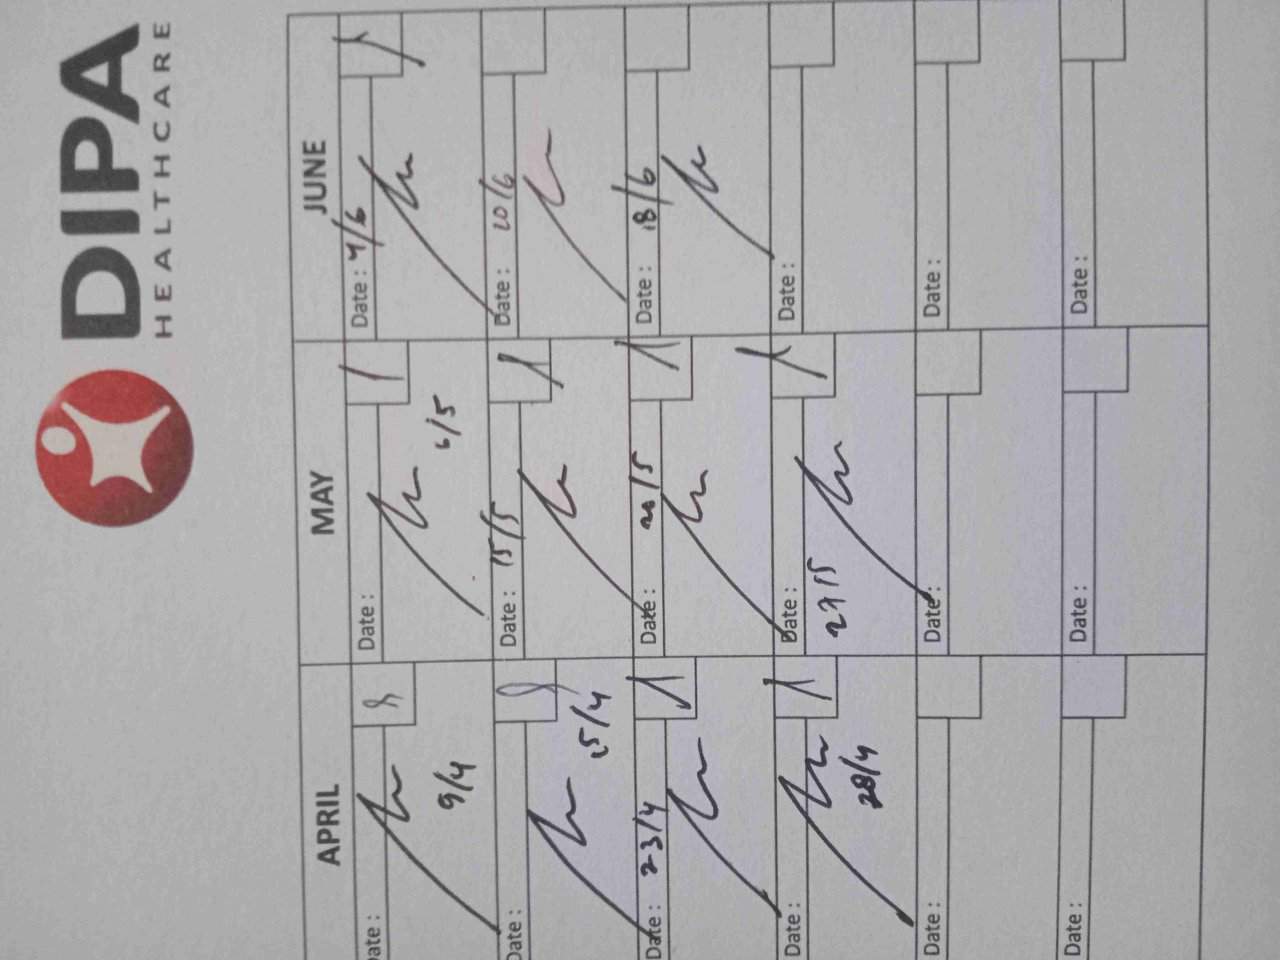 DIPA
HEALTHCARE
APRIL MAY JUNE
Date : Date : Date : 4/6
9/4 6/5
Date : Date : 15/5 Date : 10/6
15/4
Date : 23/4 Date : 20/5 Date : 18/6
Date : Date : Date :
28/4 27/5
Date : Date : Date :
Date : Date : Date :